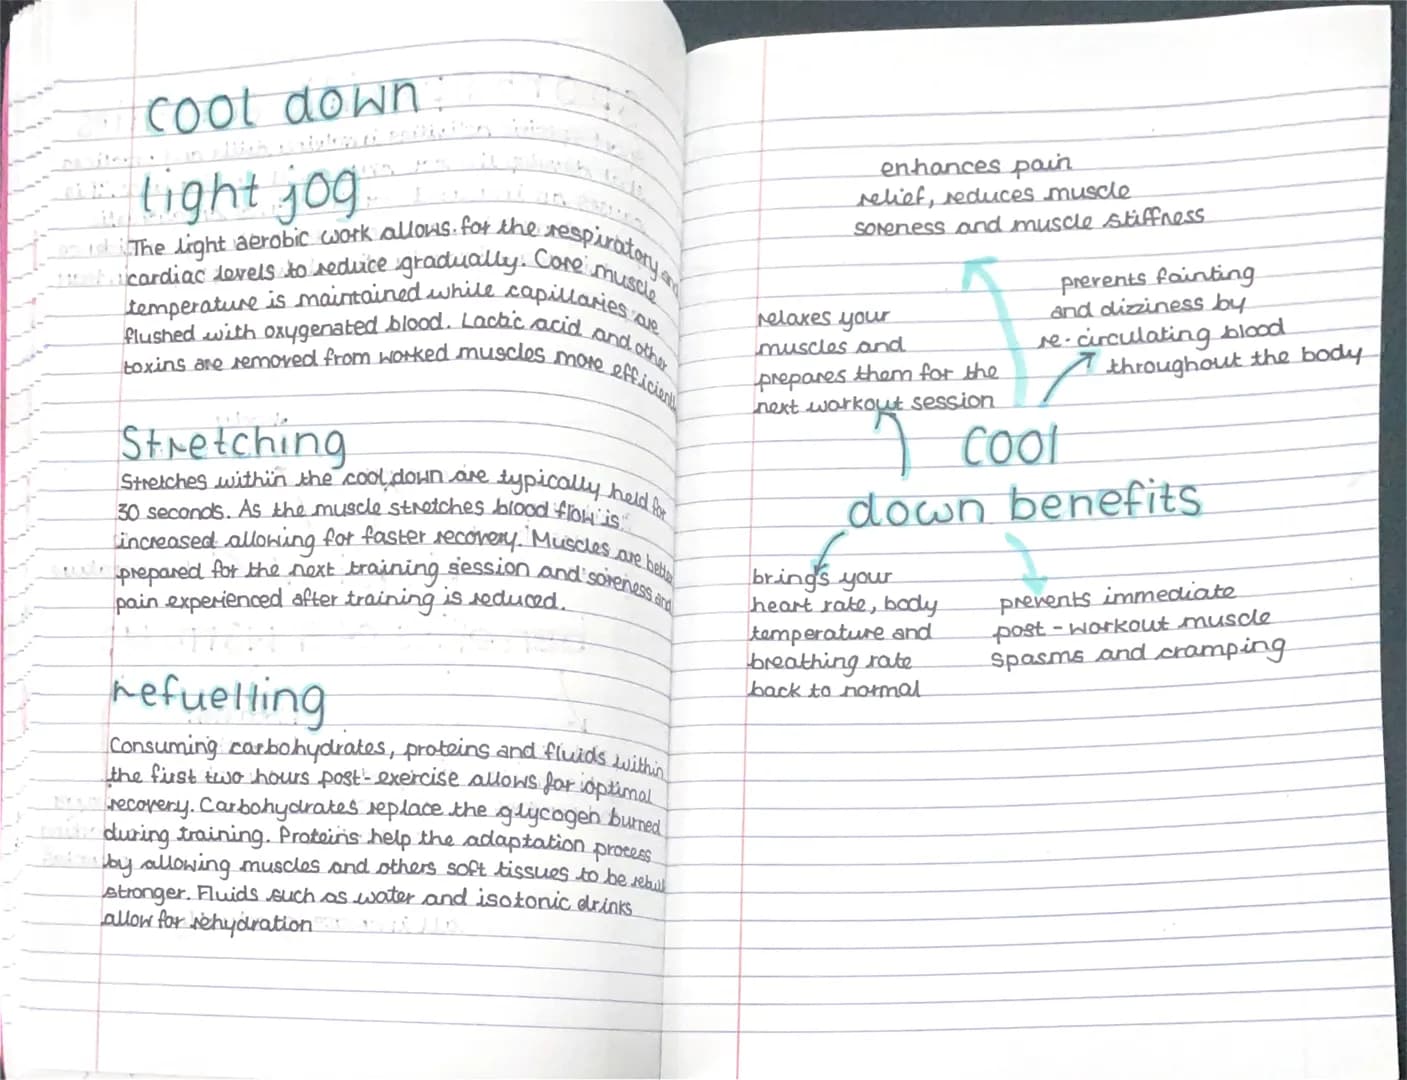 cool down
light jog
The light aerobic work allows for the respiratory and
cardiac levels to reduce gradually. Core muscle
temperature is maintained while capillaries are
flushed with oxygenated blood. Lactic acid and other
toxins are removed from worked muscles more efficiently
Stretching
Stretches within the cool down are typically held for
30 seconds. As the muscle stretches blood flow is
increased allowing for faster recovery. Muscles are better
prepared for the next training session and soreness and
pain experienced after training is reduced.
refuelling
Consuming carbohydrates, proteins and fluids within
the first two hours post-exercise allows for optimal
recovery. Carbohydrates replace the glycogen burned
during training. Proteins help the adaptation process
by allowing muscles and others soft tissues to be rebuilt
stronger. Fluids such as water and isotonic drinks
allow for rehydration
enhances pain
relief, reduces muscle
soreness and muscle stiffness
prevents fainting
and dizziness by
re-circulating blood
throughout the body
relaxes your
muscles and
prepares them for the
next workout session
cool
down benefits
brings your
heart rate, body
temperature and
breathing rate
back to normal
prevents immediate
post-workout muscle
spasms and cramping